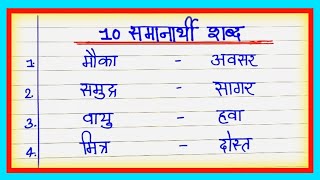 10 समानार्थी शब्द
1. मौका - अवसर
2. समुद्र - सागर
3. वायु - हवा
4. मित्र - दोस्त